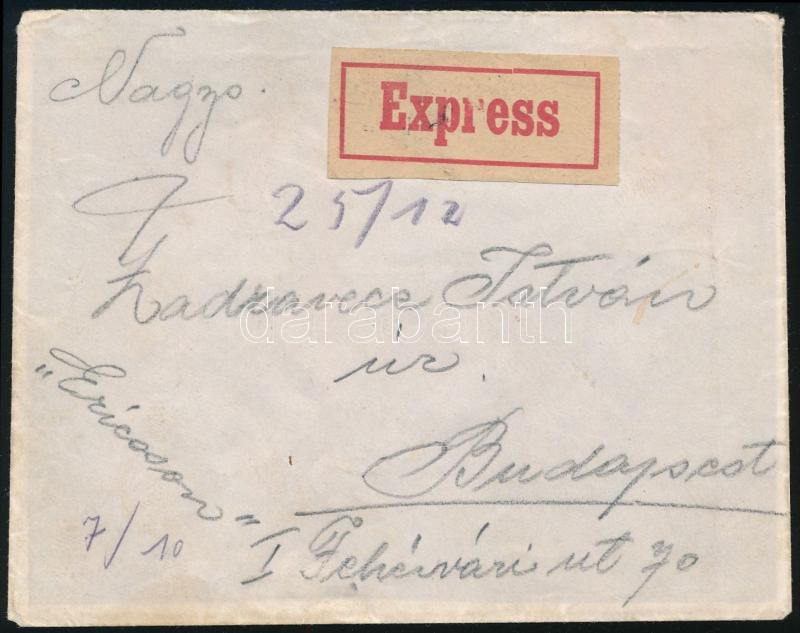 Nagys.
Express
25/12
Zadravecz István
úr.
"Ericsson"
Budapest
7/10
I Fehérvári ut 70
darabanth